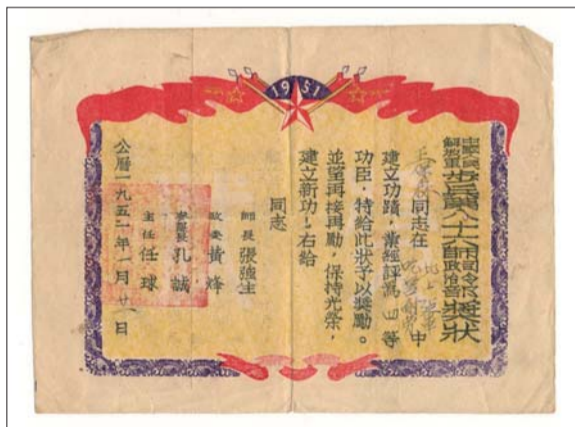 1951
中國人民解放軍步兵第八十六師司令部政治部獎狀
同志在 中
建立功蹟，業經評為 四 等
功臣，特給此狀予以獎勵。
並望再接再勵，保持光榮，
建立新功！右給
同志
師長 張強生
政委 黃烽
參謀長 孔誠
主任 任球
公曆一九五二年一月廿一日